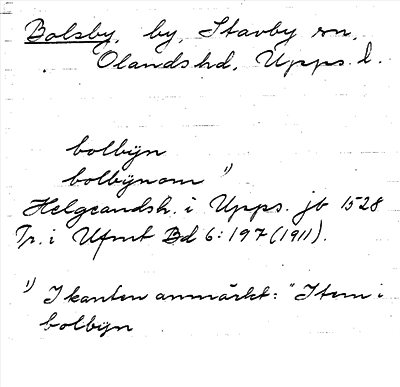 Bolsby, by, Stavby sn,
Olands hd, Upps. l.
bolbÿn
bolbÿnom 1)
Helgeandsh. i Upps. jb 1528
Tr. i Ufmt Bd 6:197 (1911).
1) I kanten anmärkt: "Item i
bolbÿn